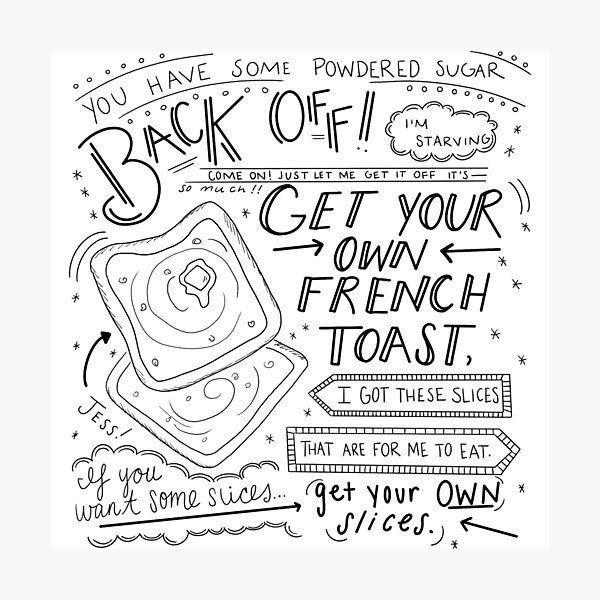 YOU HAVE SOME POWDERED SUGAR
BACK OFF!
I'M
STARVING
COME ON! JUST LET ME GET IT OFF IT'S
so much!!
GET YOUR
OWN
FRENCH
TOAST,
I GOT THESE SLICES
THAT ARE FOR ME TO EAT.
Jess!
If you
want some slices...
get your OWN
slices.